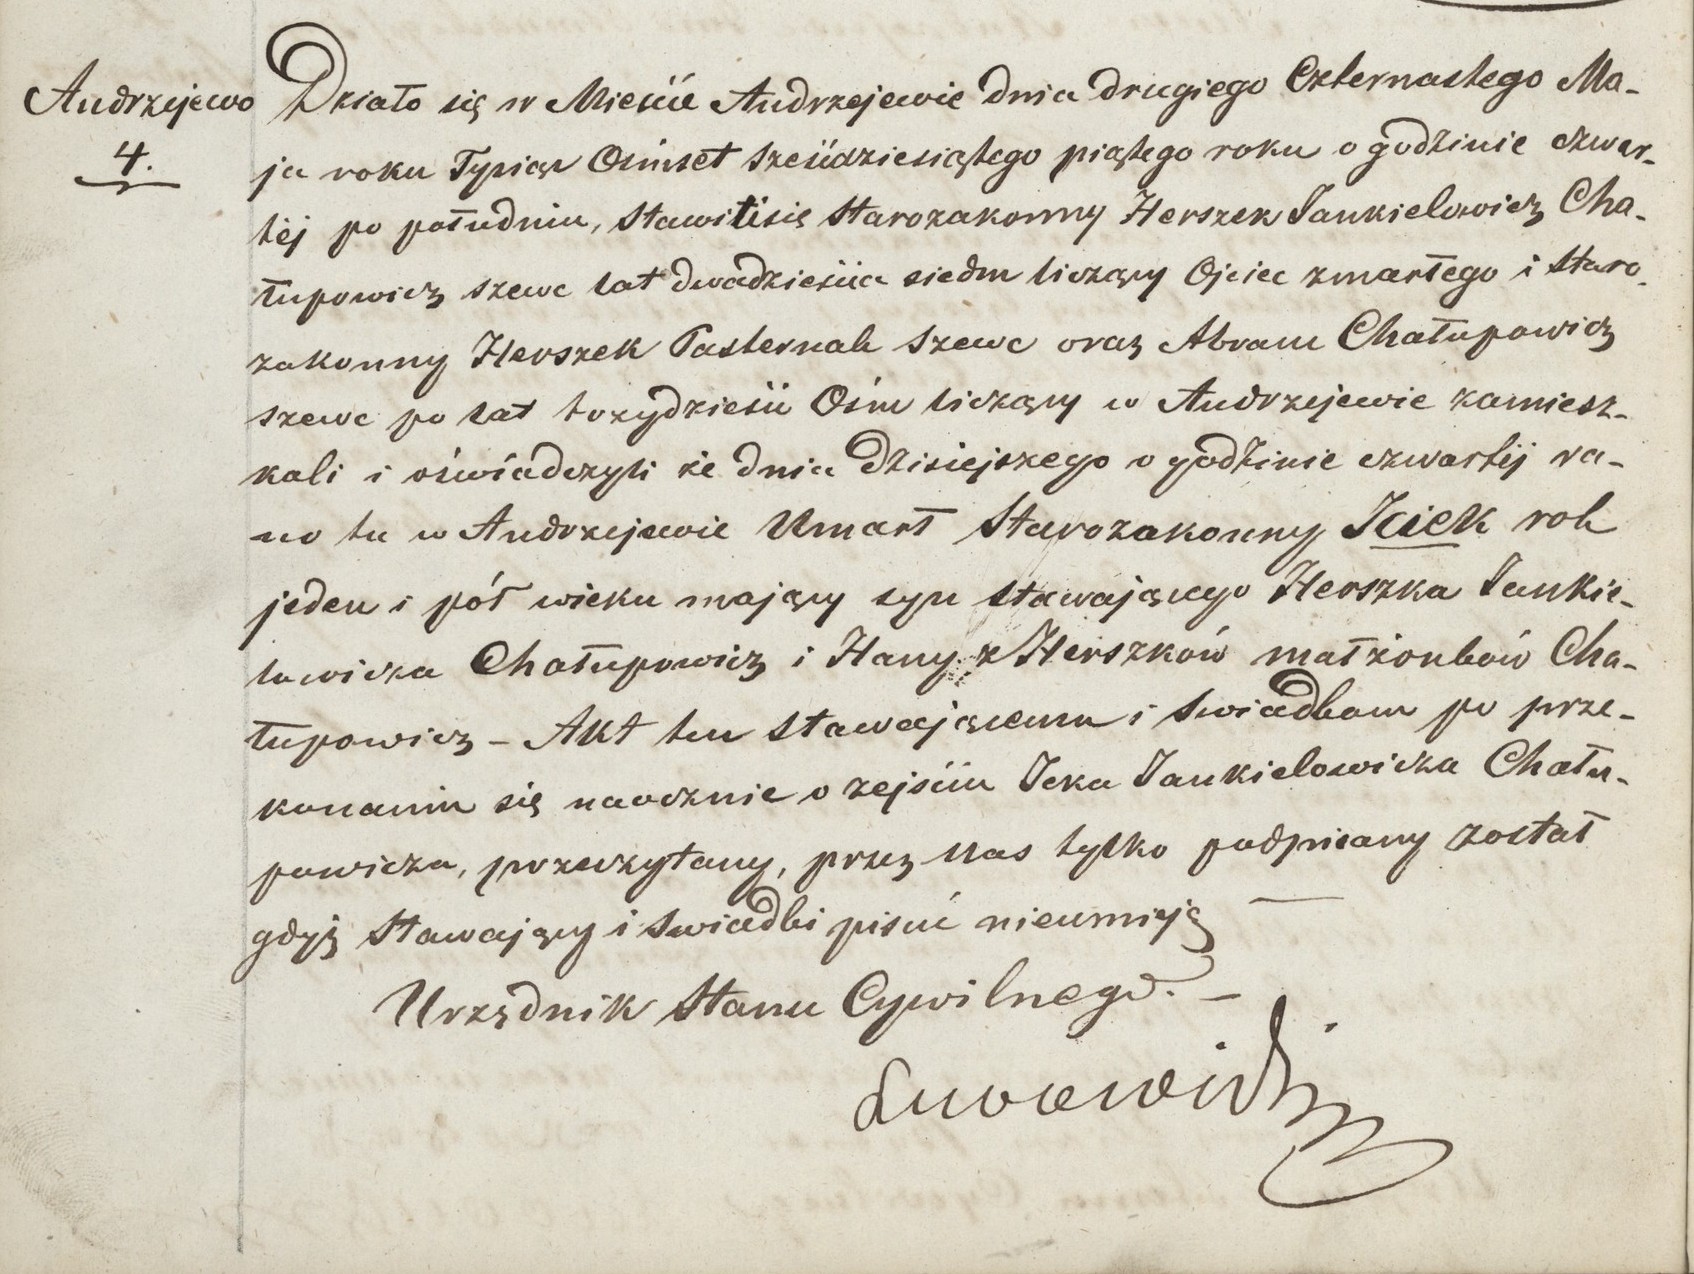 Andrzejewo
4.
Działo się w Mieście Andrzejewie dnia drugiego Czternastego Ma-
ja roku Tysiąc Ośmset sześćdziesiątego piątego roku o godzinie czwar-
téj po południu, stawili się Starozakonny Herszek Jankielowicz Cha-
łupowicz szewc lat dwadzieścia siedm liczący Ojciec zmarłego i Staro-
zakonny Herszek Pasternak szewc oraz Abram Chałupowicz
szewc po lat trzydzieści Ośm liczący w Andrzejewie zamiesz-
kali i oświadczyli że dnia dzisiejszego o godzinie czwartéj ra-
no tu w Andrzejewie Umarł Starozakonny Iciek rok
jeden i pół wieku mający syn stawającego Herszka Jankie-
lowicza Chałupowicz i Hany z Herszków małżonków Cha-
łupowicz - Akt ten stawającemu i świadkom po prze-
konaniu się naocznie o zejściu Icka Jankielowicza Chału-
powicza, przeczytany, przez Nas tylko podpisany został
gdyż Stawający i świadki pisać nieumieją —
Urzędnik Stanu Cywilnego. -